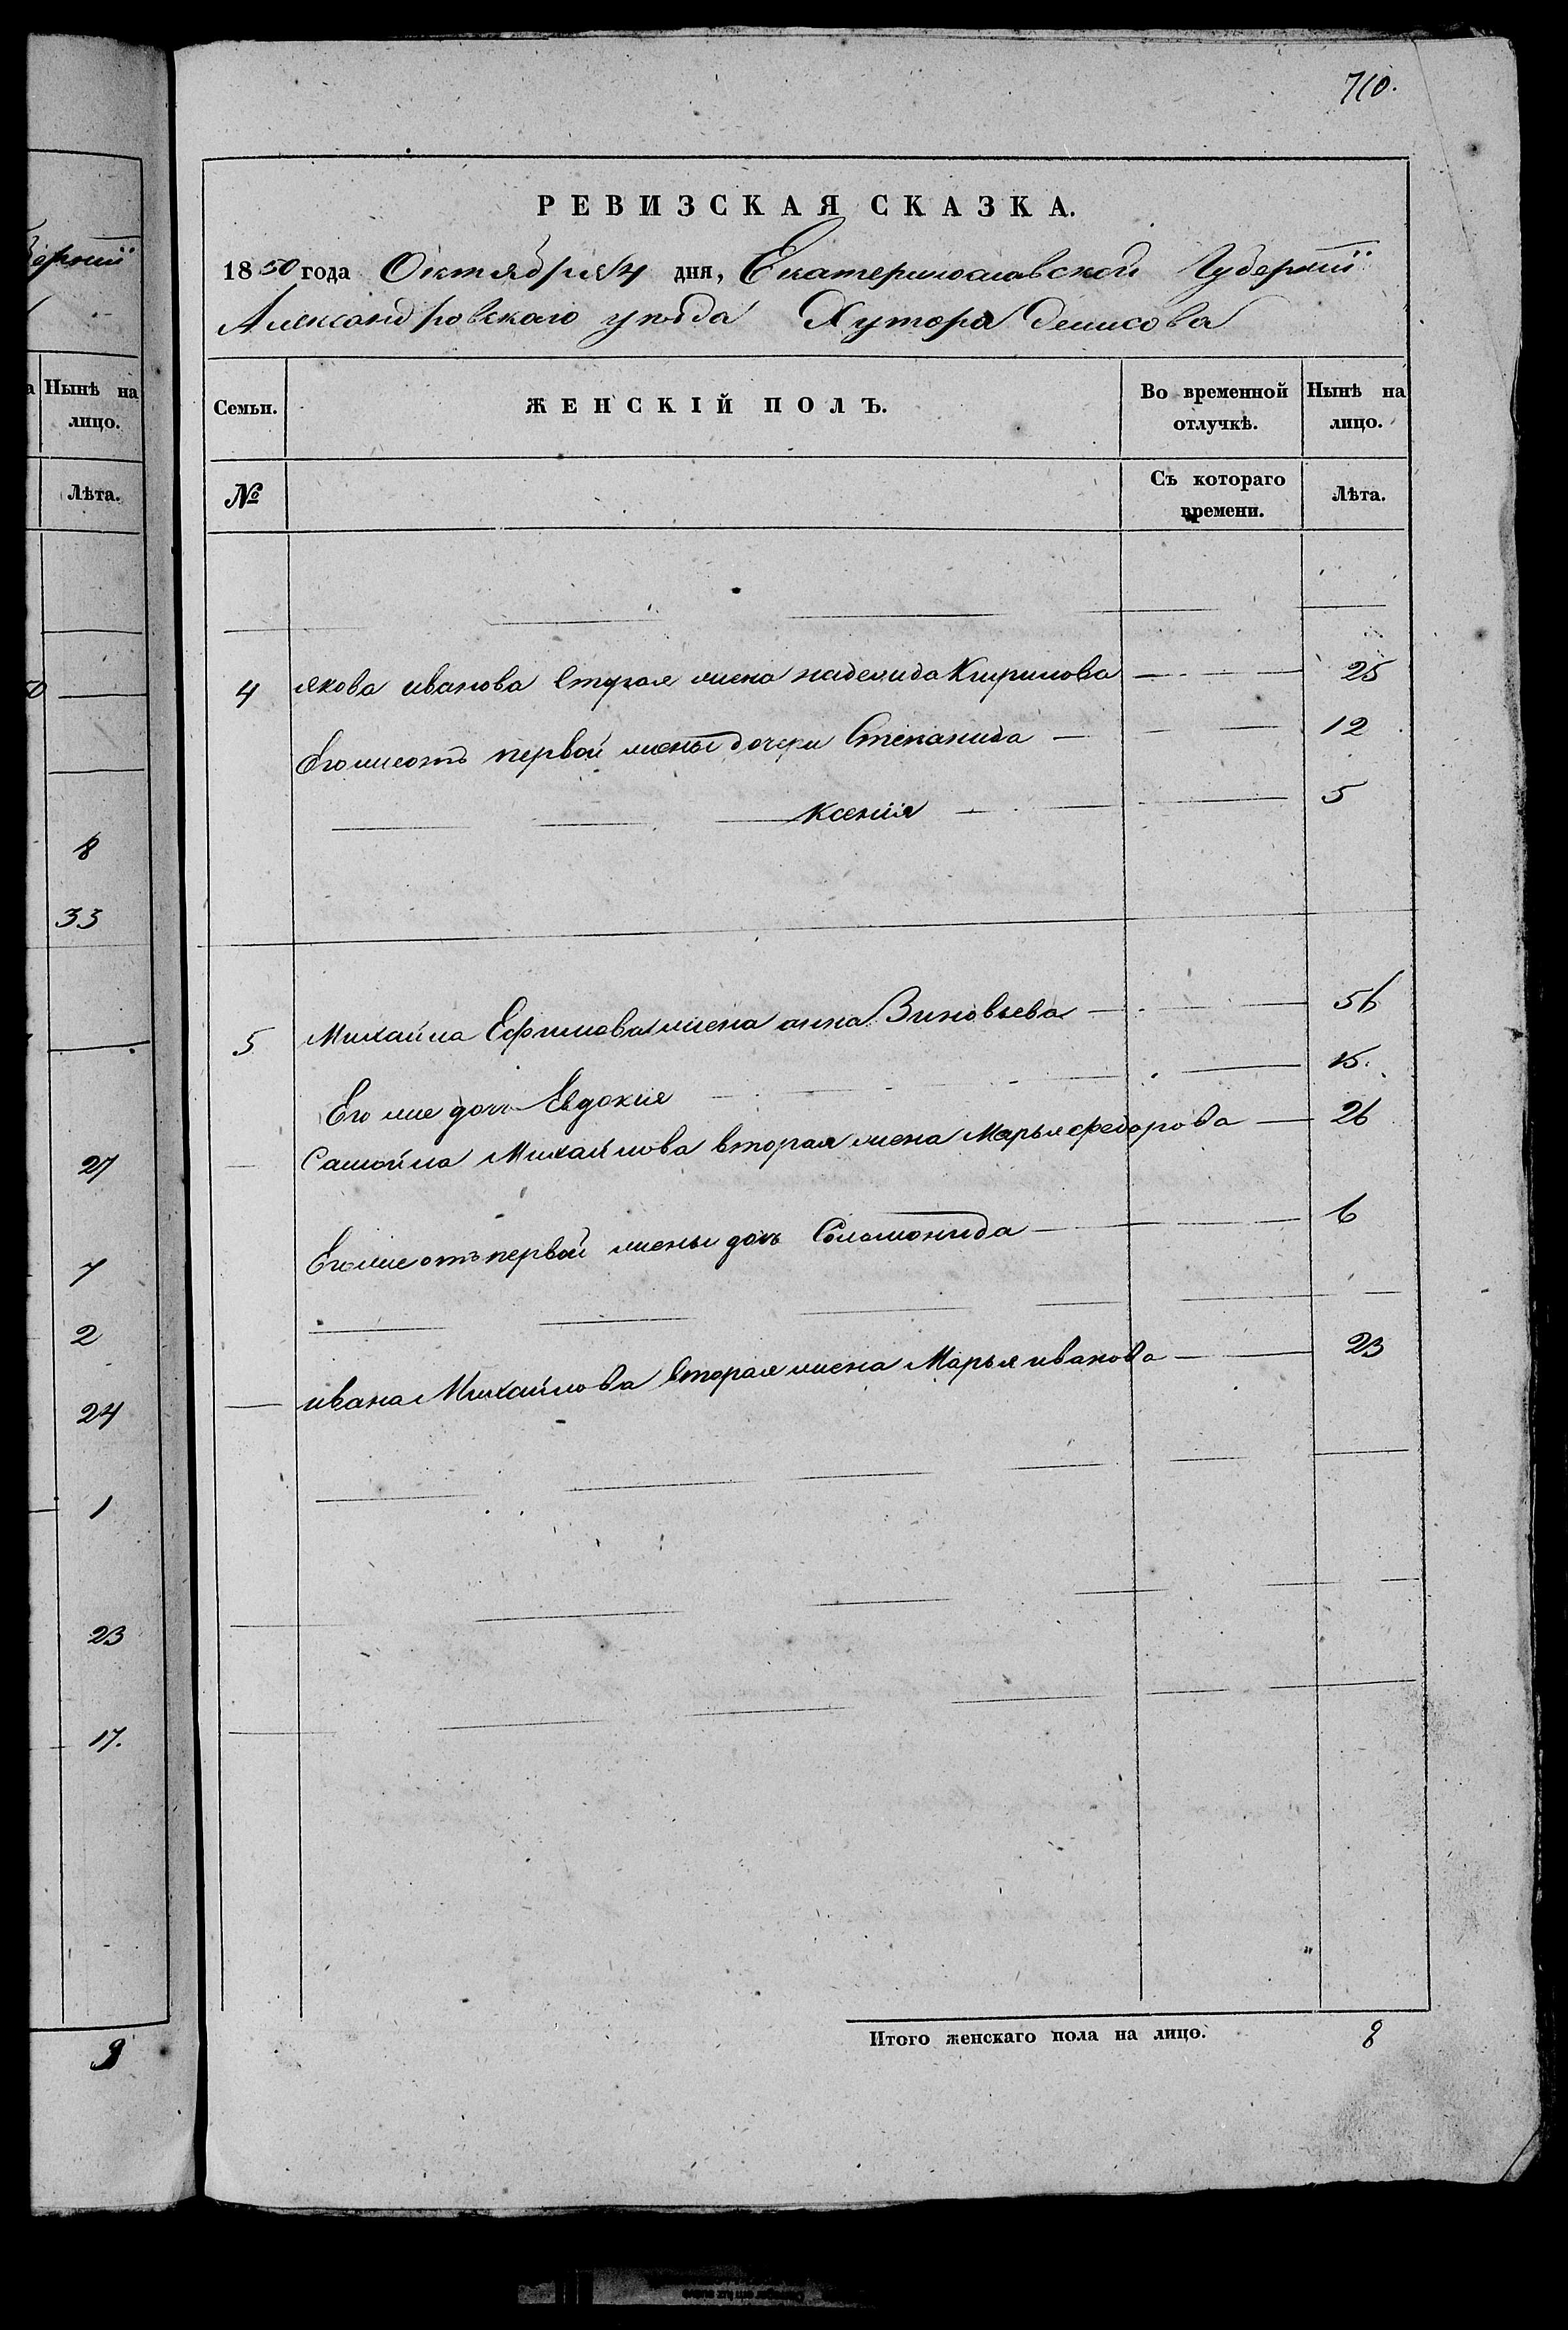 710.
РЕВИЗСКАЯ СКАЗКА.
1850 года Октября 4 дня, Екатеринославской Губернïи
Александровскаго уѣзда Хутора Денисова
Семьи. ЖЕНСКІЙ ПОЛЪ. Во временной отлучкѣ. Нынѣ на лицо.
№ Съ котораго времени. Лѣта.
4 якова иванова вторая жена надежда Кирилова 25
Его же отъ первой жены дочери Степанида 12
Ксенія 5
5 Михайла Ефимова жена анна Зиновьева 56
Его же дочь Евдокия 15.
Самойла Михайлова вторая жена Марья федорова 26
Его же отъ первой жены дочь Соломонида 6
ивана Михайлова вторая жена Марья иванова 23
Итого женскаго пола на лицо. 8
Нынѣ на
лицо.
Лѣта.
8
33
27
7
2
24
1
23
17.
9